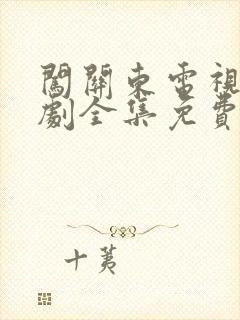 闖關東電視
劇全集免費
十荑